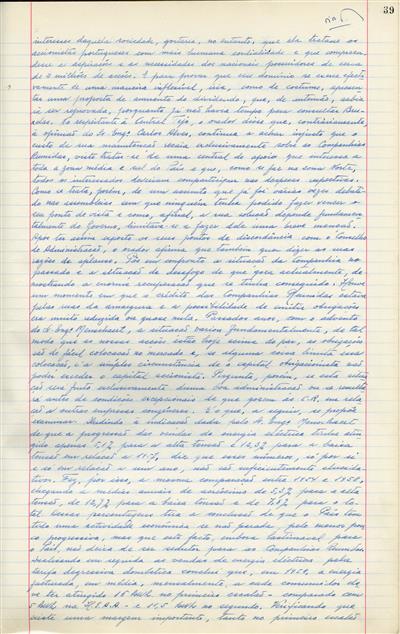 39
interesse daquela sociedade, gostaria, no entanto, que ela tratasse os
accionistas portugueses com mais humana cordialidade e que compreen-
desse as aspirações e as necessidades dos nacionais possuidores de cerca
de 2 milhões de acções. E para provar que esse domínio se exerce efecti-
vamente de uma maneira inflexível, iria, como de costume, apresen-
tar uma proposta de aumento do dividendo, que, de antemão, sabia
ia ser reprovada, porquanto já não havia tempo para consultar Bru-
xelas. No respeitante à Central Tejo, o orador disse que, contrariamente
à opinião do Sr. Engº Carlos Alves, continua a achar injusto que o
custo da sua manutenção recaia exclusivamente sobre as Companhias
Reunidas, visto tratar-se de uma central de apoio que interessa a
toda a zona média e sul do País e que, como se faz na zona Norte,
todos os interessados deveriam comparticipar nas despesas respectivas.
Como se trata, porém, de um assunto que já foi várias vezes debati-
do nas assembleias sem que ninguém tenha podido fazer vencer o
seu ponto de vista e como, afinal, a sua solução depende fundamen-
talmente do Governo, limitava-se a fazer a ele uma breve menção.
Após ter assim exposto os seus pontos de discordância com o Conselho
de Administração, o orador afirma que também quer dizer as suas
razões de aplauso. Pôs em confronto a situação da Companhia no
passado e a situação de desafogo de que goza actualmente, de-
monstrando a enorme recuperação que se tinha conseguido. Houve
um momento em que o crédito das Companhias Reunidas estava
pelas ruas da amargura e a possibilidade de emitir obrigações
era muito reduzida ou quase nula. Passados anos, com o advento
do Sr. Engº Menschaert, a situação variou fundamentalmente, de tal
modo que as nossas acções estão hoje acima do par, as obrigações
são de fácil colocação no mercado e, se alguma coisa limita essa
colocação, é a simples circunstância de o capital obrigacionista não
poder exceder o capital accionista. Pergunta, porém, se esta situa-
ção será fruto exclusivamente duma boa administração ou se resulta-
rá antes de condições excepcionais de que gozam as C.R. em rela-
ção a outras empresas congéneres. É o que, a seguir, se propõe
examinar. Aludindo à indicação dada pelo Sr. Engº Menschaert
de que a progressão das vendas de energia eléctrica tinha atin-
gido apenas para a alta tensão e para a baixa
tensão em relação a 1957, diz que esses números, só por si
e só em relação a um ano, não são suficientemente elucida-
tivos. Fez, por isso, a mesma comparação entre 1954 e 1958,
chegando a médias anuais de acréscimo de 5,3% para a alta
tensão, de para a baixa tensão e de para o to-
tal. Dessas percentagens tira a conclusão de que o País tem
tido uma actividade económica se não parada, pelo menos pou-
co progressiva, mas que este facto, embora lastimável para
o País, não deixa de ser sedutor para as Companhias Reunidas.
Analisando em seguida as vendas de energia eléctrica pela
tarifa degressiva doméstica conclui que, em 1958, a energia
facturada, em média, mensalmente, a cada consumidor de-
ve ter atingido 15 kwh. no primeiro escalão - comparado com
5 kwh. na U.E.A.A. - e 19,5 kwh. no segundo. Verificando que
existe uma margem importante, tanto no primeiro escalão